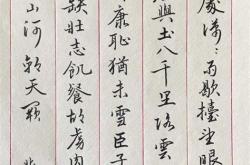 處瀟〻雨歇擡望眼
與土八千里路雲
康恥猶未雪臣子
缺壯志飢餐胡虜肉
山河朝天闕